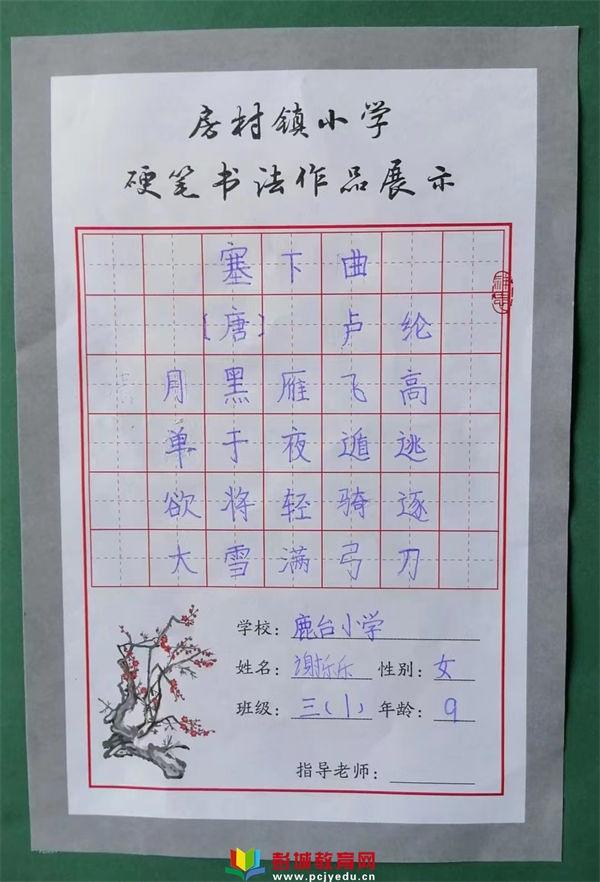 房村镇小学
硬笔书法作品展示
塞下曲
[唐] 卢纶
月黑雁飞高
单于夜遁逃
欲将轻骑逐
大雪满弓刀
学校:鹿台小学
姓名:谢乐乐 性别:女
班级:三(1) 年龄:9
指导老师:
彭城教育网
www.pcjyedu.cn